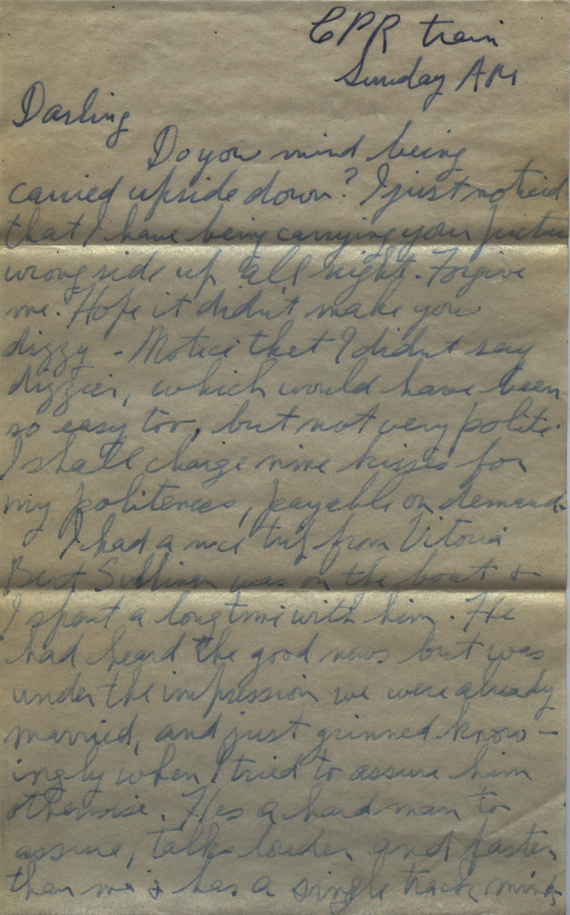 CPR train
Sunday AM
Darling
Do you mind being
carried upside down? I just noticed
that I have being carrying your picture
wrong side up all night. Forgive
me. Hope it didn't make you
dizzy - Notice that I didnt say
dizzier, which would have been
so easy too, but not very polite.
I shall charge nine kisses for
my politeness, payable on demand.
I had a nice trip from Vitoria
Bert Sullivan was on the boat &
I spent a long time with him. He
had heard the good news but was
under the impression we were already
married, and just grinned know-
ingly when I tried to assure him
otherwise. Hes a hard man to
assure, talks louder and faster
than me & has a single track mind,